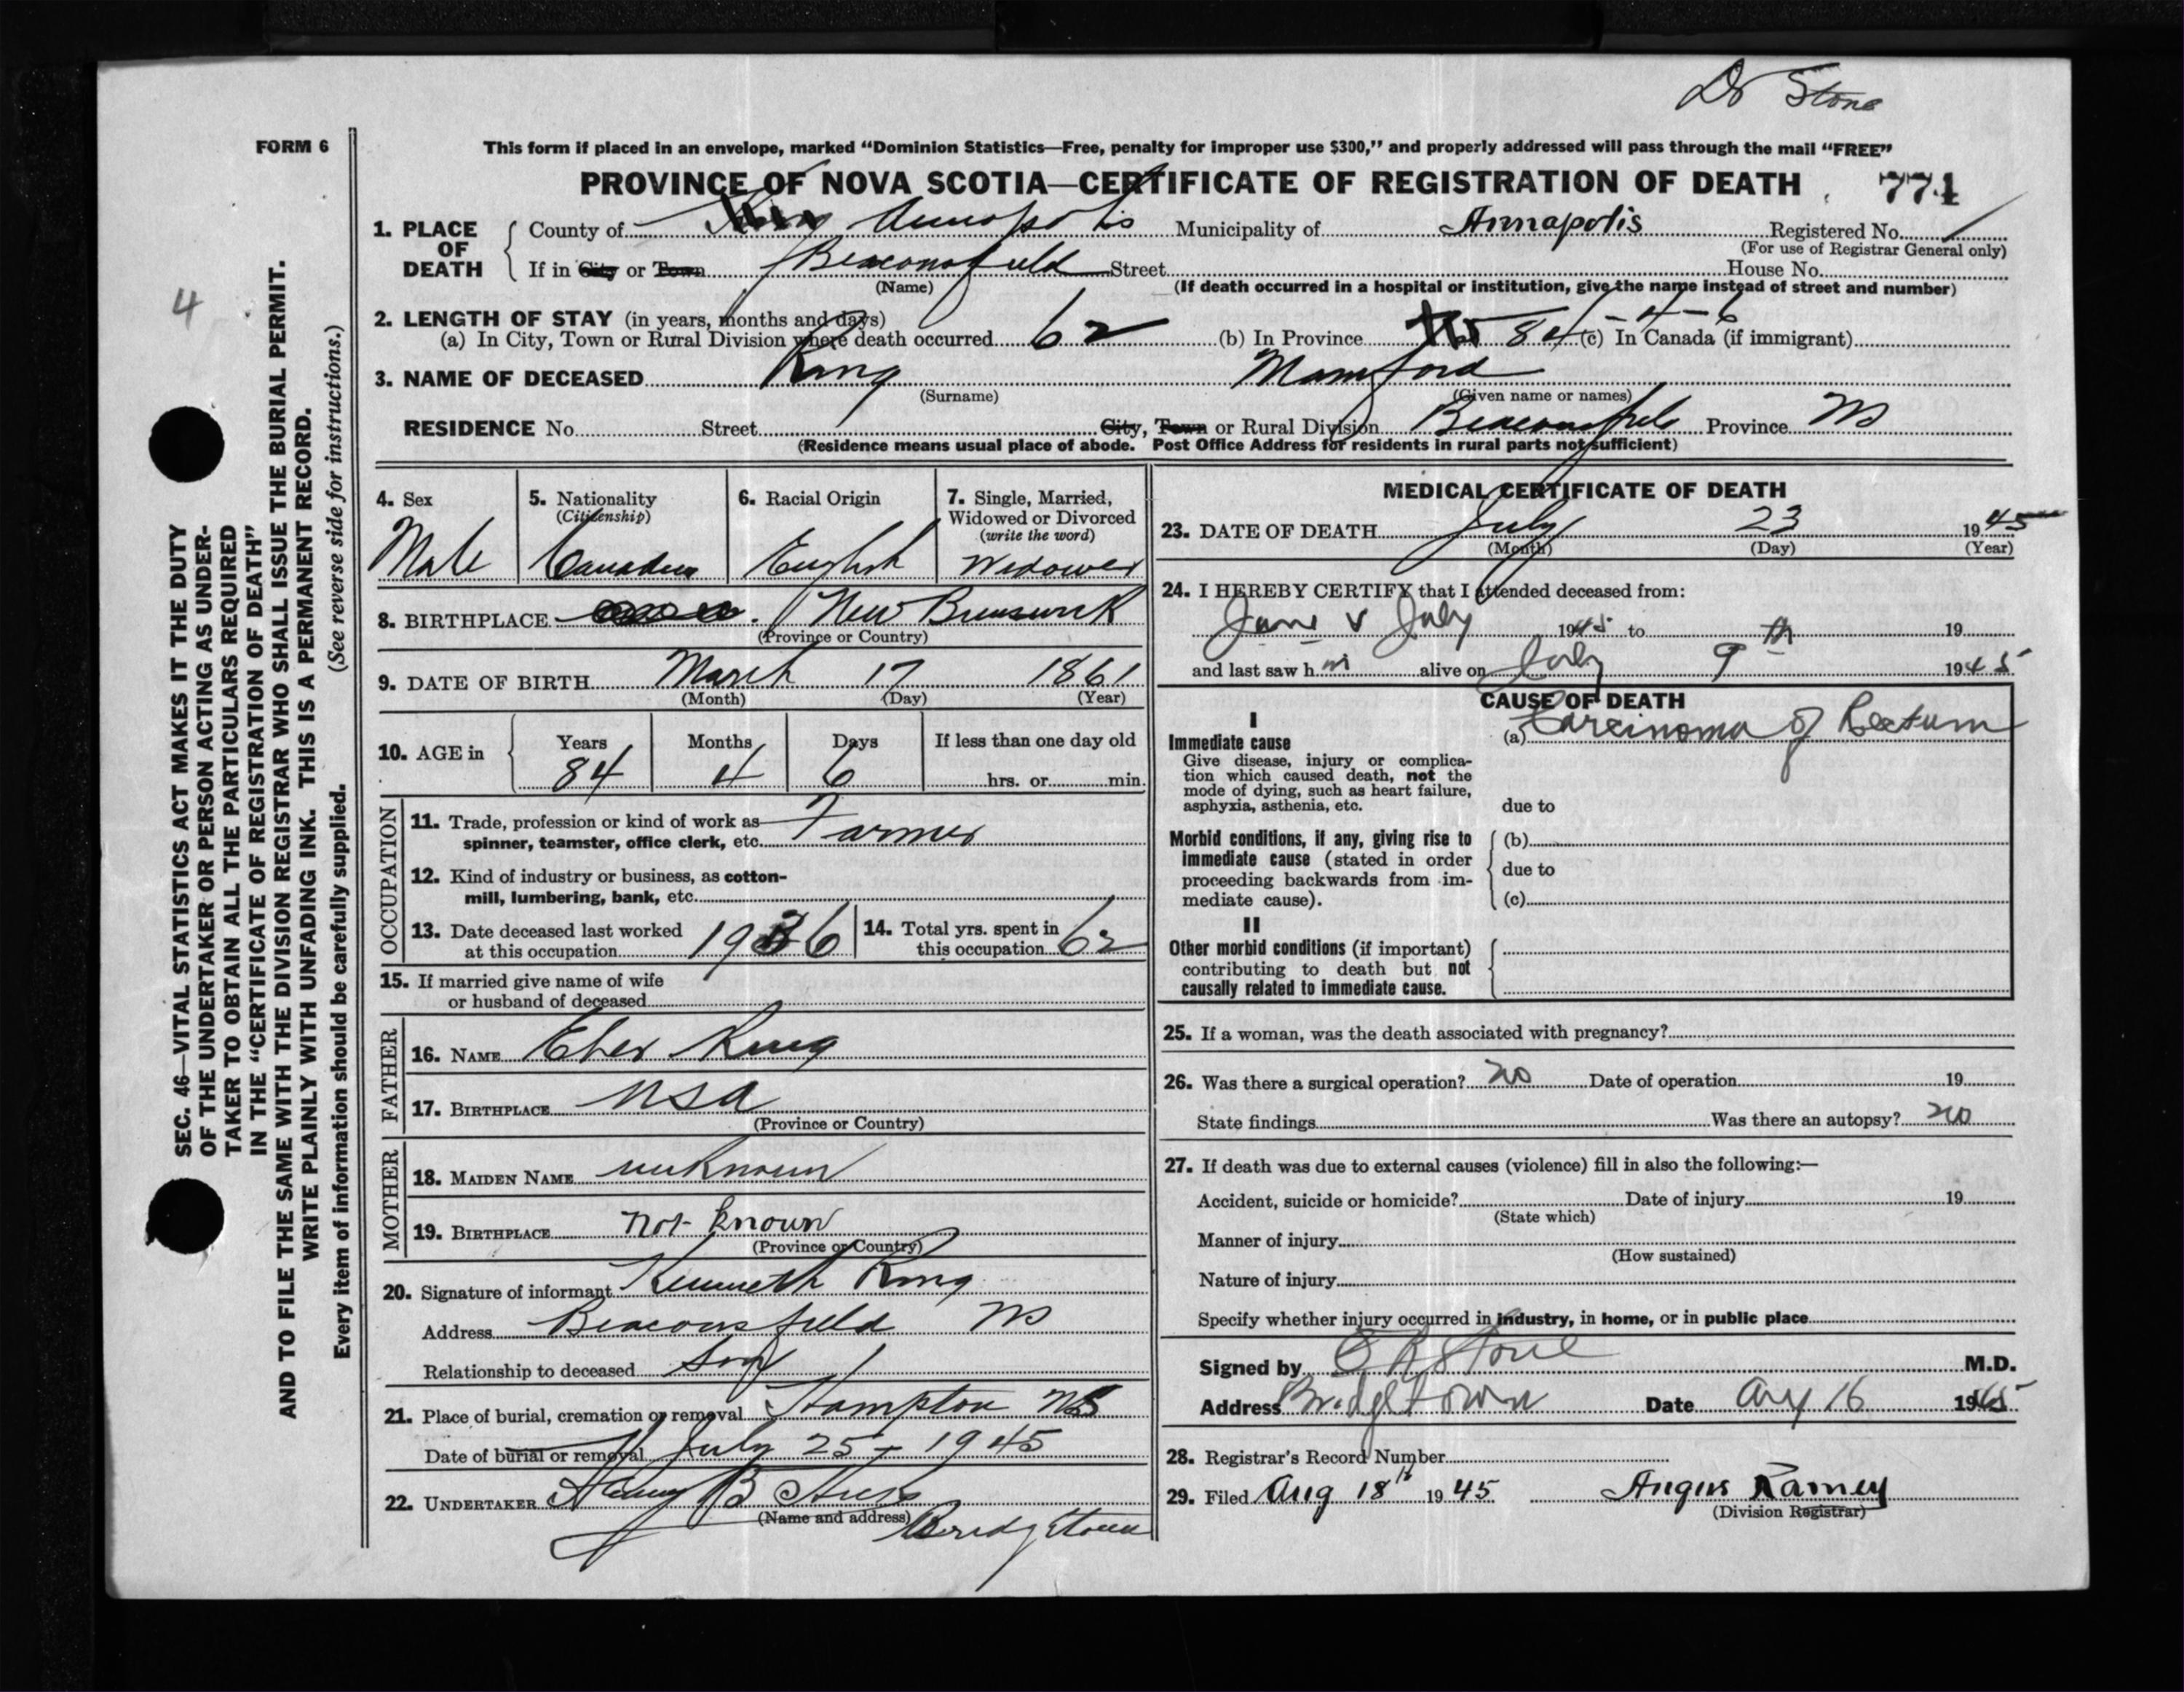 Dr Stone
FORM 6
This form if placed in an envelope, marked “Dominion Statistics—Free, penalty for improper use $300,” and properly addressed will pass through the mail “FREE”
PROVINCE OF NOVA SCOTIA—CERTIFICATE OF REGISTRATION OF DEATH 771
1. PLACE OF DEATH { County of Annapolis Municipality of Annapolis Registered No.
(For use of Registrar General only)
If in City or Town Beaconsfield Street House No.
(Name) (If death occurred in a hospital or institution, give the name instead of street and number)
2. LENGTH OF STAY (in years, months and days)
(a) In City, Town or Rural Division where death occurred 62 (b) In Province 84-4-6 (c) In Canada (if immigrant)
3. NAME OF DECEASED King
(Surname) (Given name or names)
RESIDENCE No. Street City, Town or Rural Division Beaconsfield Province NS
(Residence means usual place of abode. Post Office Address for residents in rural parts not sufficient)
4. Sex 5. Nationality 6. Racial Origin 7. Single, Married,
(Citizenship) Widowed or Divorced
(write the word)
Male Canadian English Widower
8. BIRTHPLACE New Brunswick
(Province or Country)
9. DATE OF BIRTH March 17 1861
(Month) (Day) (Year)
10. AGE in { Years Months Days If less than one day old
84 4 6 hrs. or min.
OCCUPATION
11. Trade, profession or kind of work as
spinner, teamster, office clerk, etc. Farmer
12. Kind of industry or business, as cotton-
mill, lumbering, bank, etc.
13. Date deceased last worked 14. Total yrs. spent in
at this occupation 1936 this occupation 62
15. If married give name of wife
or husband of deceased
FATHER
16. NAME Eber King
17. BIRTHPLACE
(Province or Country)
MOTHER
18. MAIDEN NAME unknown
19. BIRTHPLACE not known
(Province or Country)
20. Signature of informant Kenneth King
Address Beaconsfield NS
Relationship to deceased Son
21. Place of burial, cremation or removal Hampton NS
Date of burial or removal July 25 - 1945
22. UNDERTAKER B
(Name and address) Bridgetown
MEDICAL CERTIFICATE OF DEATH
23. DATE OF DEATH July 23 1945
(Month) (Day) (Year)
24. I HEREBY CERTIFY that I attended deceased from:
July 1945 to th 19
and last saw him alive on July 9th 1945
CAUSE OF DEATH
I (a) Carcinoma of Rectum
Immediate cause
Give disease, injury or complica-
tion which caused death, not the
mode of dying, such as heart failure,
asphyxia, asthenia, etc. due to
Morbid conditions, if any, giving rise to { (b)
immediate cause (stated in order
proceeding backwards from im- due to
mediate cause). (c)
II
Other morbid conditions (if important)
contributing to death but not
causally related to immediate cause.
25. If a woman, was the death associated with pregnancy?
26. Was there a surgical operation? no Date of operation 19
State findings Was there an autopsy? no
27. If death was due to external causes (violence) fill in also the following:—
Accident, suicide or homicide? Date of injury 19
(State which)
Manner of injury
(How sustained)
Nature of injury
Specify whether injury occurred in industry, in home, or in public place
Signed by Stone M.D.
Address Bridgetown Date Aug 16 1945
28. Registrar's Record Number
29. Filed Aug 18th 1945 Angus Ramey
(Division Registrar)
4
SEC. 46—VITAL STATISTICS ACT MAKES IT THE DUTY
OF THE UNDERTAKER OR PERSON ACTING AS UNDER-
TAKER TO OBTAIN ALL THE PARTICULARS REQUIRED
IN THE “CERTIFICATE OF REGISTRATION OF DEATH”
AND TO FILE THE SAME WITH THE DIVISION REGISTRAR WHO SHALL ISSUE THE BURIAL PERMIT.
WRITE PLAINLY WITH UNFADING INK. THIS IS A PERMANENT RECORD.
Every item of information should be carefully supplied. (See reverse side for instructions.)